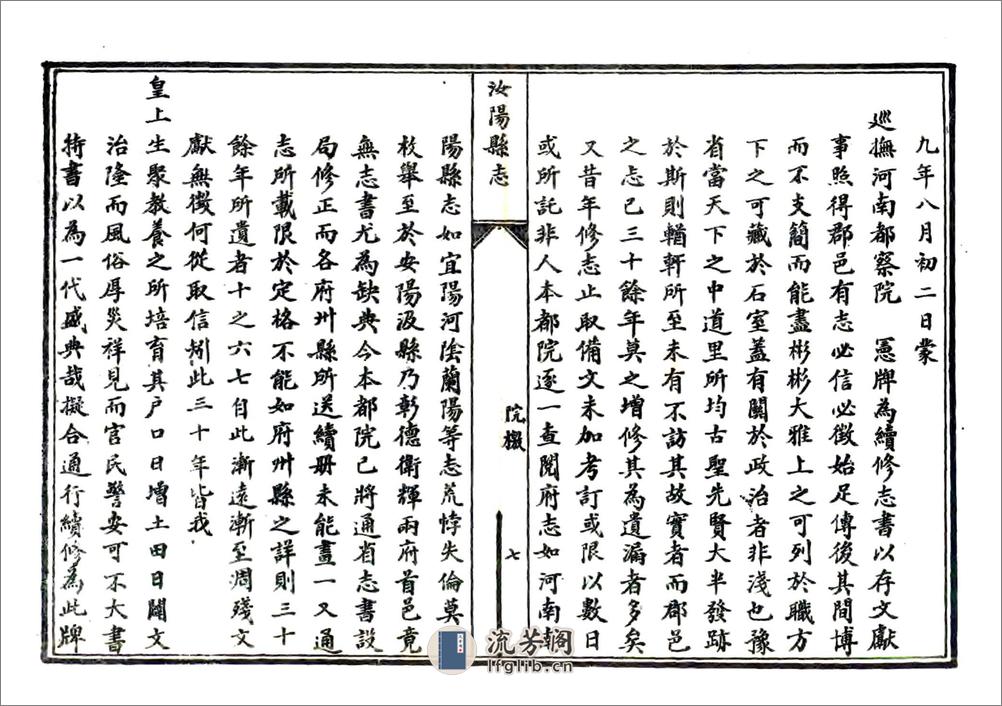 九年八月初二日蒙
巡撫河南都察院 憲牌為續修志書以存文獻
事照得郡邑有志必信必徵始足傳後其間博
而不支簡而能盡彬彬大雅上之可列於職方
下之可藏於石室蓋有關於政治者非淺也豫
省當天下之中道里所均古聖先賢大半發跡
於斯則輶軒所至未有不訪其故實者而郡邑
之志已三十餘年莫之增修其為遺漏者多矣
又昔年修志止取備文未加考訂或限以數日
或所託非人本都院逐一查閱府志如河南南
汝陽縣志
院檄
七
陽縣志如宜陽河陰蘭陽等志荒悖失倫莫
枚舉至於安陽汲縣乃彰德衛輝兩府首邑竟
無志書尤為缺典今本都院已將通省志書設
局修正而各府州縣所送續册未能畫一又通
志所載限於定格不能如府州縣之詳則三十
餘年所遺者十之六七自此漸遠漸至凋殘文
獻無徵何從取信矧此三十年皆我
皇上生聚教養之所培育其戶口日增土田日闢文
治隆而風俗厚災祥見而官民警安可不大書
特書以為一代盛典哉擬合通行續修為此牌
流芳閣
lfglib.cn